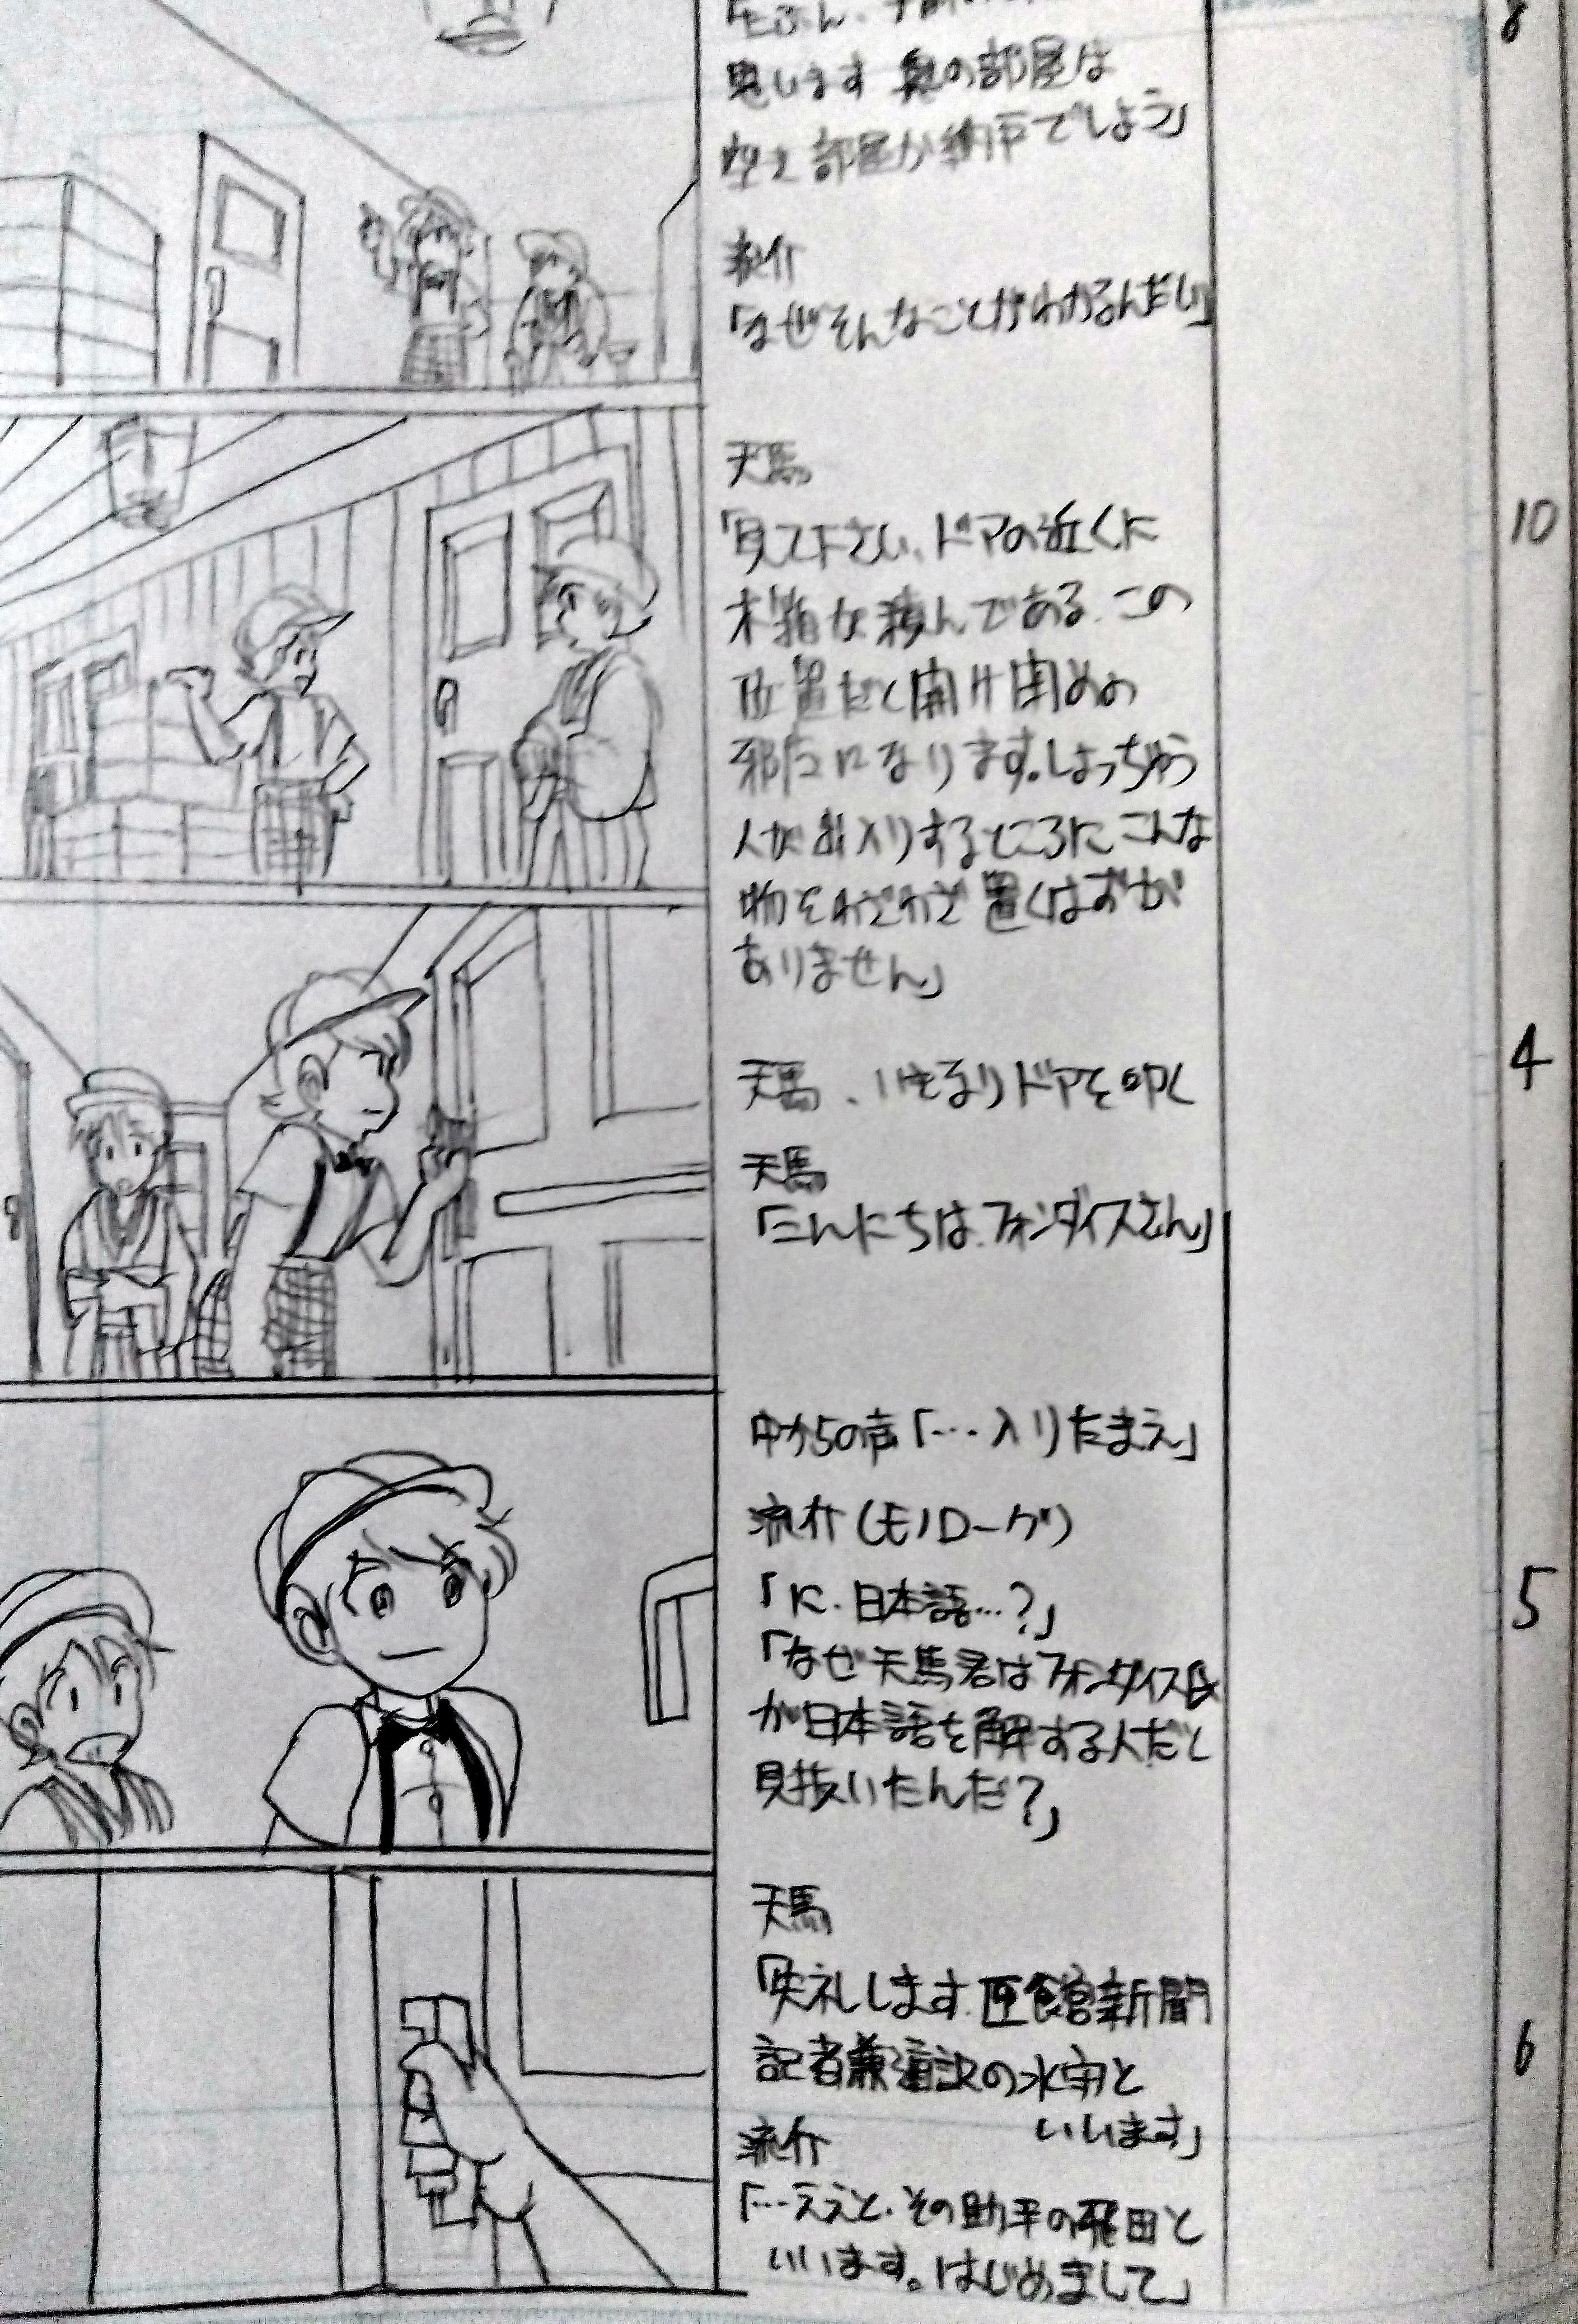 「たぶん、手前の
思います 奥の部屋は
空き部屋か納戸でしょう」
8
流介
「なぜそんなことがわかるんだい」
天馬
「見て下さい、ドアの近くに
木箱が積んである。この
位置だと開け閉めの
邪魔になります。しょっちゅう
人が出入りするところにこんな
物をわざわざ置くはずが
ありません」
10
天馬、いきなりドアを叩く
天馬
「こんにちは、フォンダイスさん」
4
中からの声「…入りたまえ」
流介(モノローグ)
「に、日本語…?」
「なぜ天馬君はフォンダイス氏
が日本語を解する人だと
見抜いたんだ?」
5
天馬
「失礼します。匣館新聞
記者兼通訳の水守と
いいます」
流介
「…ええと、その助手の飛田と
いいます。はじめまして」
6